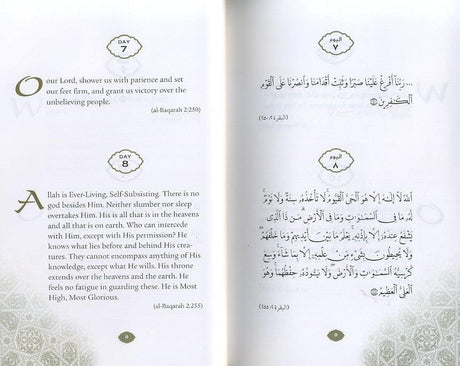 DAY
7
O our Lord, shower us with patience and set
our feet firm, and grant us victory over the
unbelieving people.
(al-Baqarah 2:250)
DAY
8
Allah is Ever-Living, Self-Subsisting. There is no
god besides Him. Neither slumber nor sleep
overtakes Him. His is all that is in the heavens
and all that is on earth. Who can intercede
with Him, except with His permission? He
knows what lies before and behind His crea-
tures. They cannot encompass anything of His
knowledge, except what He wills. His throne
extends over the heavens and the earth. He
feels no fatigue in guarding these. He is Most
High, Most Glorious.
(al-Baqarah 2:255)
8
اليوم
٧
... رَبَّنَآ أَفْرِغْ عَلَيْنَا صَبْرًا وَثَبِّتْ أَقْدَامَنَا وَٱنصُرْنَا عَلَى ٱلْقَوْمِ
ٱلْكَٰفِرِينَ
(البقرة ٢: ٢٥٠)
اليوم
٨
ٱللَّهُ لَآ إِلَٰهَ إِلَّا هُوَ ٱلْحَىُّ ٱلْقَيُّومُ ۚ لَا تَأْخُذُهُۥ سِنَةٌ وَلَا نَوْمٌ ۚ
لَّهُۥ مَا فِى ٱلسَّمَٰوَٰتِ وَمَا فِى ٱلْأَرْضِ ۗ مَن ذَا ٱلَّذِى
يَشْفَعُ عِندَهُۥٓ إِلَّا بِإِذْنِهِۦ ۚ يَعْلَمُ مَا بَيْنَ أَيْدِيهِمْ وَمَا خَلْفَهُمْ ۖ
وَلَا يُحِيطُونَ بِشَىْءٍ مِّنْ عِلْمِهِۦٓ إِلَّا بِمَا شَآءَ ۚ وَسِعَ
كُرْسِيُّهُ ٱلسَّمَٰوَٰتِ وَٱلْأَرْضَ ۖ وَلَا يَـُٔودُهُۥ حِفْظُهُمَا ۚ وَهُوَ
ٱلْعَلِىُّ ٱلْعَظِيمُ
(البقرة ٢: ٢٥٥)